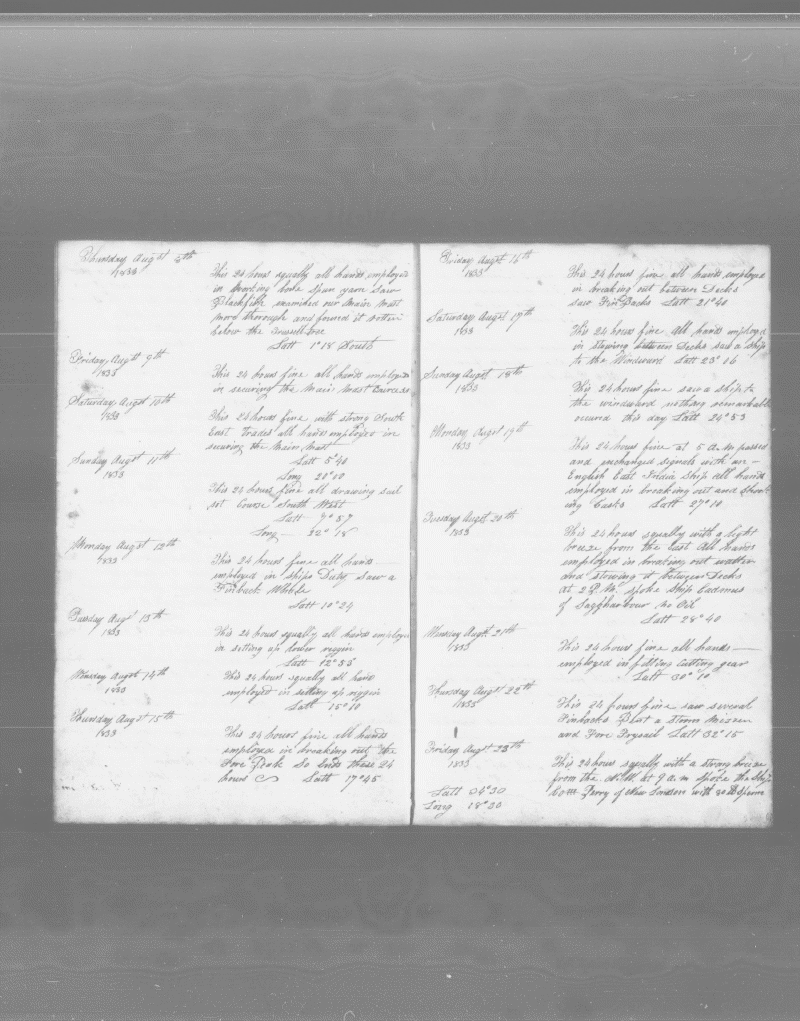 Thursday Augst 8th
1833
This 24 hours squally all hands employed
in working boats Spun yarn Saw
Blackfish examined our Main Mast
more thorough and found it rotten
below the Trussell tree
Latt 1°18 South
Friday Augst 9th
1833
This 24 hours fine all hands employed
in securing the Main Mast
Saturday Augst 10th
1833
This 24 hours fine with strong South
East trades all hands employed in
securing the Main Mast
Latt 5°40
Long 20°10
Sunday Augst 11th
1833
This 24 hours fine all drawing sail
set Course South West
Latt 7°57
Long 22°18
Monday Augst 12th
1833
This 24 hours fine all hands
employed in Ships Duty Saw a
Finback Whale
Latt 10°24
Tuesday Augst 13th
1833
This 24 hours squally all hands employed
in setting up lower riggin
Latt 12°55
Wensday Augst 14th
1833
This 24 hours squally all hand
employed in setting up riggin
Latt 15°10
Thursday Augst 15th
1833
This 24 hours fine all hands
employed in breaking out the
Fore Peek So Ends these 24
hours Latt 17°45
Friday Augst 16th
1833
This 24 hours fine all hands employed
in breaking out between Decks
saw Finbacks Latt 21°40
Saturday Augst 17th
1833
This 24 hours fine all hands employed
in stowing between Decks saw a Ship
to the Windward Latt 23°16
Sunday Augst 18th
1833
This 24 hours fine saw a ship to
the windward nothing remarkable
occured this day Latt 24°53
Monday Augst 19th
1833
This 24 hours fine at 5 A.M. passed
and exchanged signals with an
English East India Ship all hands
employed in breaking out and
ing Casks Latt 27°10
Tuesday Augst 20th
1833
This 24 hours squally with a light
breeze from the East All hands
employed in breaking out watter
and stowing it between Decks
at 2 P.M. spoke Ship Cadmus
of Saggharbour No Oil
Latt 28°40
Wensday Augst 21th
1833
This 24 hours fine all hands
employed in fitting cutting gear
Latt 30°10
Thursday Augst 22th
1833
This 24 hours fine saw several
Finbacks Bent a storm Mizzen
and Fore Trysail Latt 32°15
Friday Augst 23th
1833
This 24 hours squally with a strong breeze
from the N.W. at 9 a.m spoke the Ship
Com Perry of New London with 80 Sperm
Latt 34°30
Long 18°30